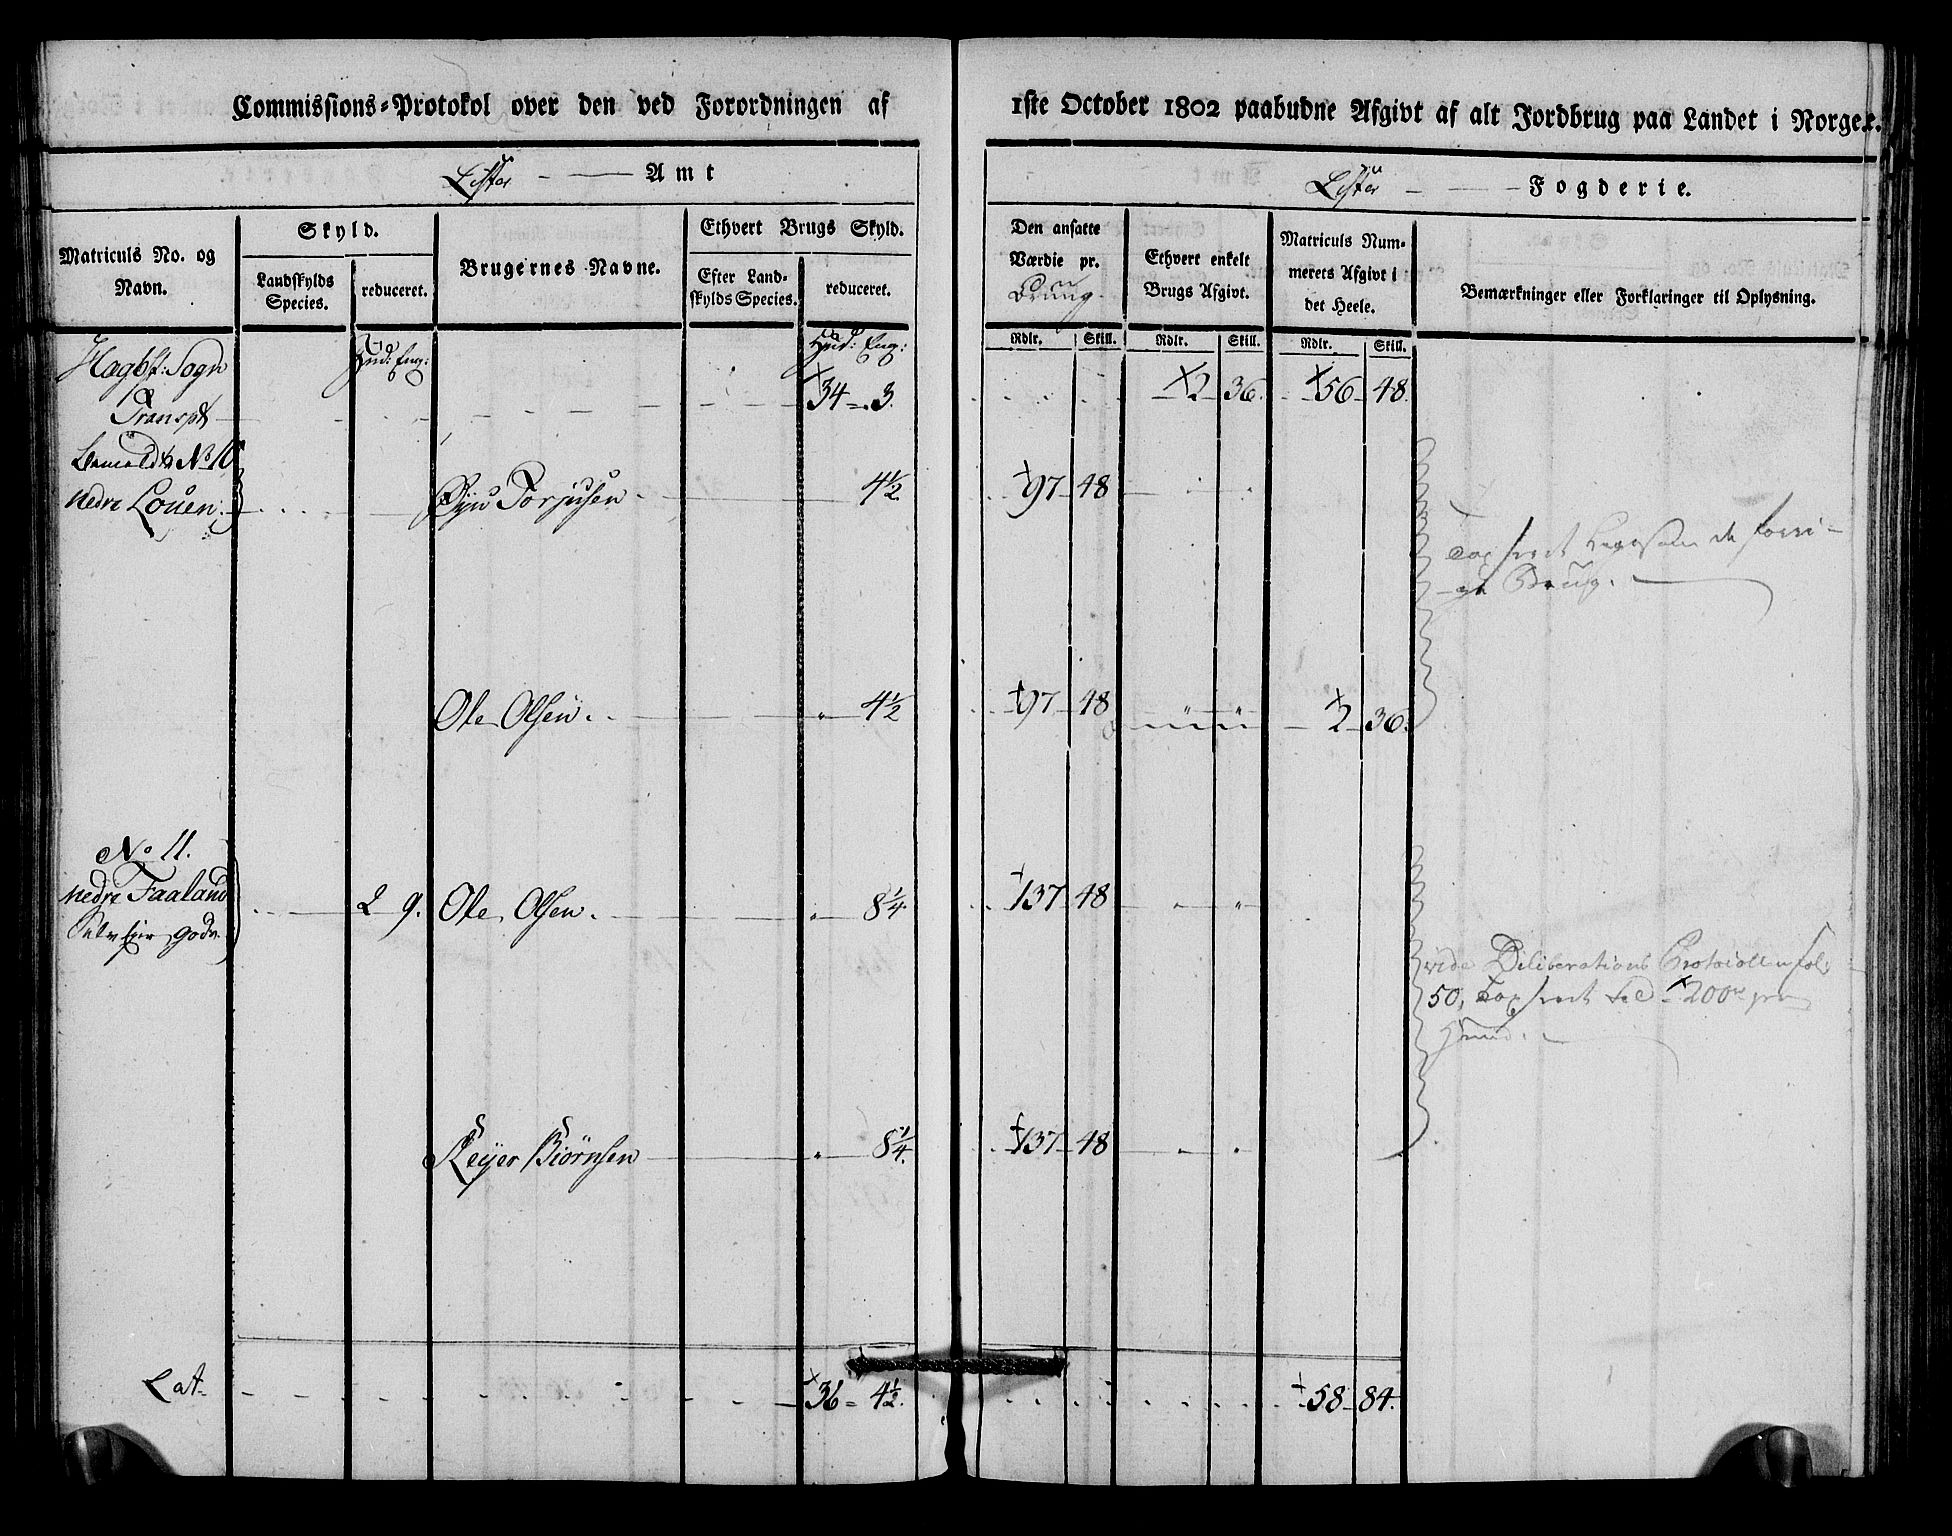 Commissions-Protokol over den ved Forordningen af
1ste October 1802 paabudne Afgivt af alt Jordbrug paa Landet i Norge.
Lister Amt
Lister Fogderie.
Matriculs No. og Navn.
Skyld.
Landskylds Species.
reduceret.
Brugernes Navne.
Ethvert Brugs Skyld.
Efter Landskylds Species.
reduceret.
Den ansatte Værdie pr. Bruug.
Ethvert enkelt Brugs Afgivt.
Matriculs Nummerets Afgivt i det Heele.
Bemærkninger eller Forklaringer til Oplysning.
Rdlr. Skill. Rdlr. Skill. Rdlr. Skill.
Hagbf: Sogn Hud: Eng: Hud: Eng:
Transpt 34 3. 2 36. 56 48.
No 10
nedre Louen: Torjusen 4½ 97 48
Ole Olsen. 4½ 97 48 2 36.
No 11.
nedre Faaland 2 9. Ole Olsen. 8¼ 137 48
vide Deliberations Protocollen fol:
50, 200
Reyer Biørnsen 8¼ 137 48
Lat. 36 4½. 58 84.